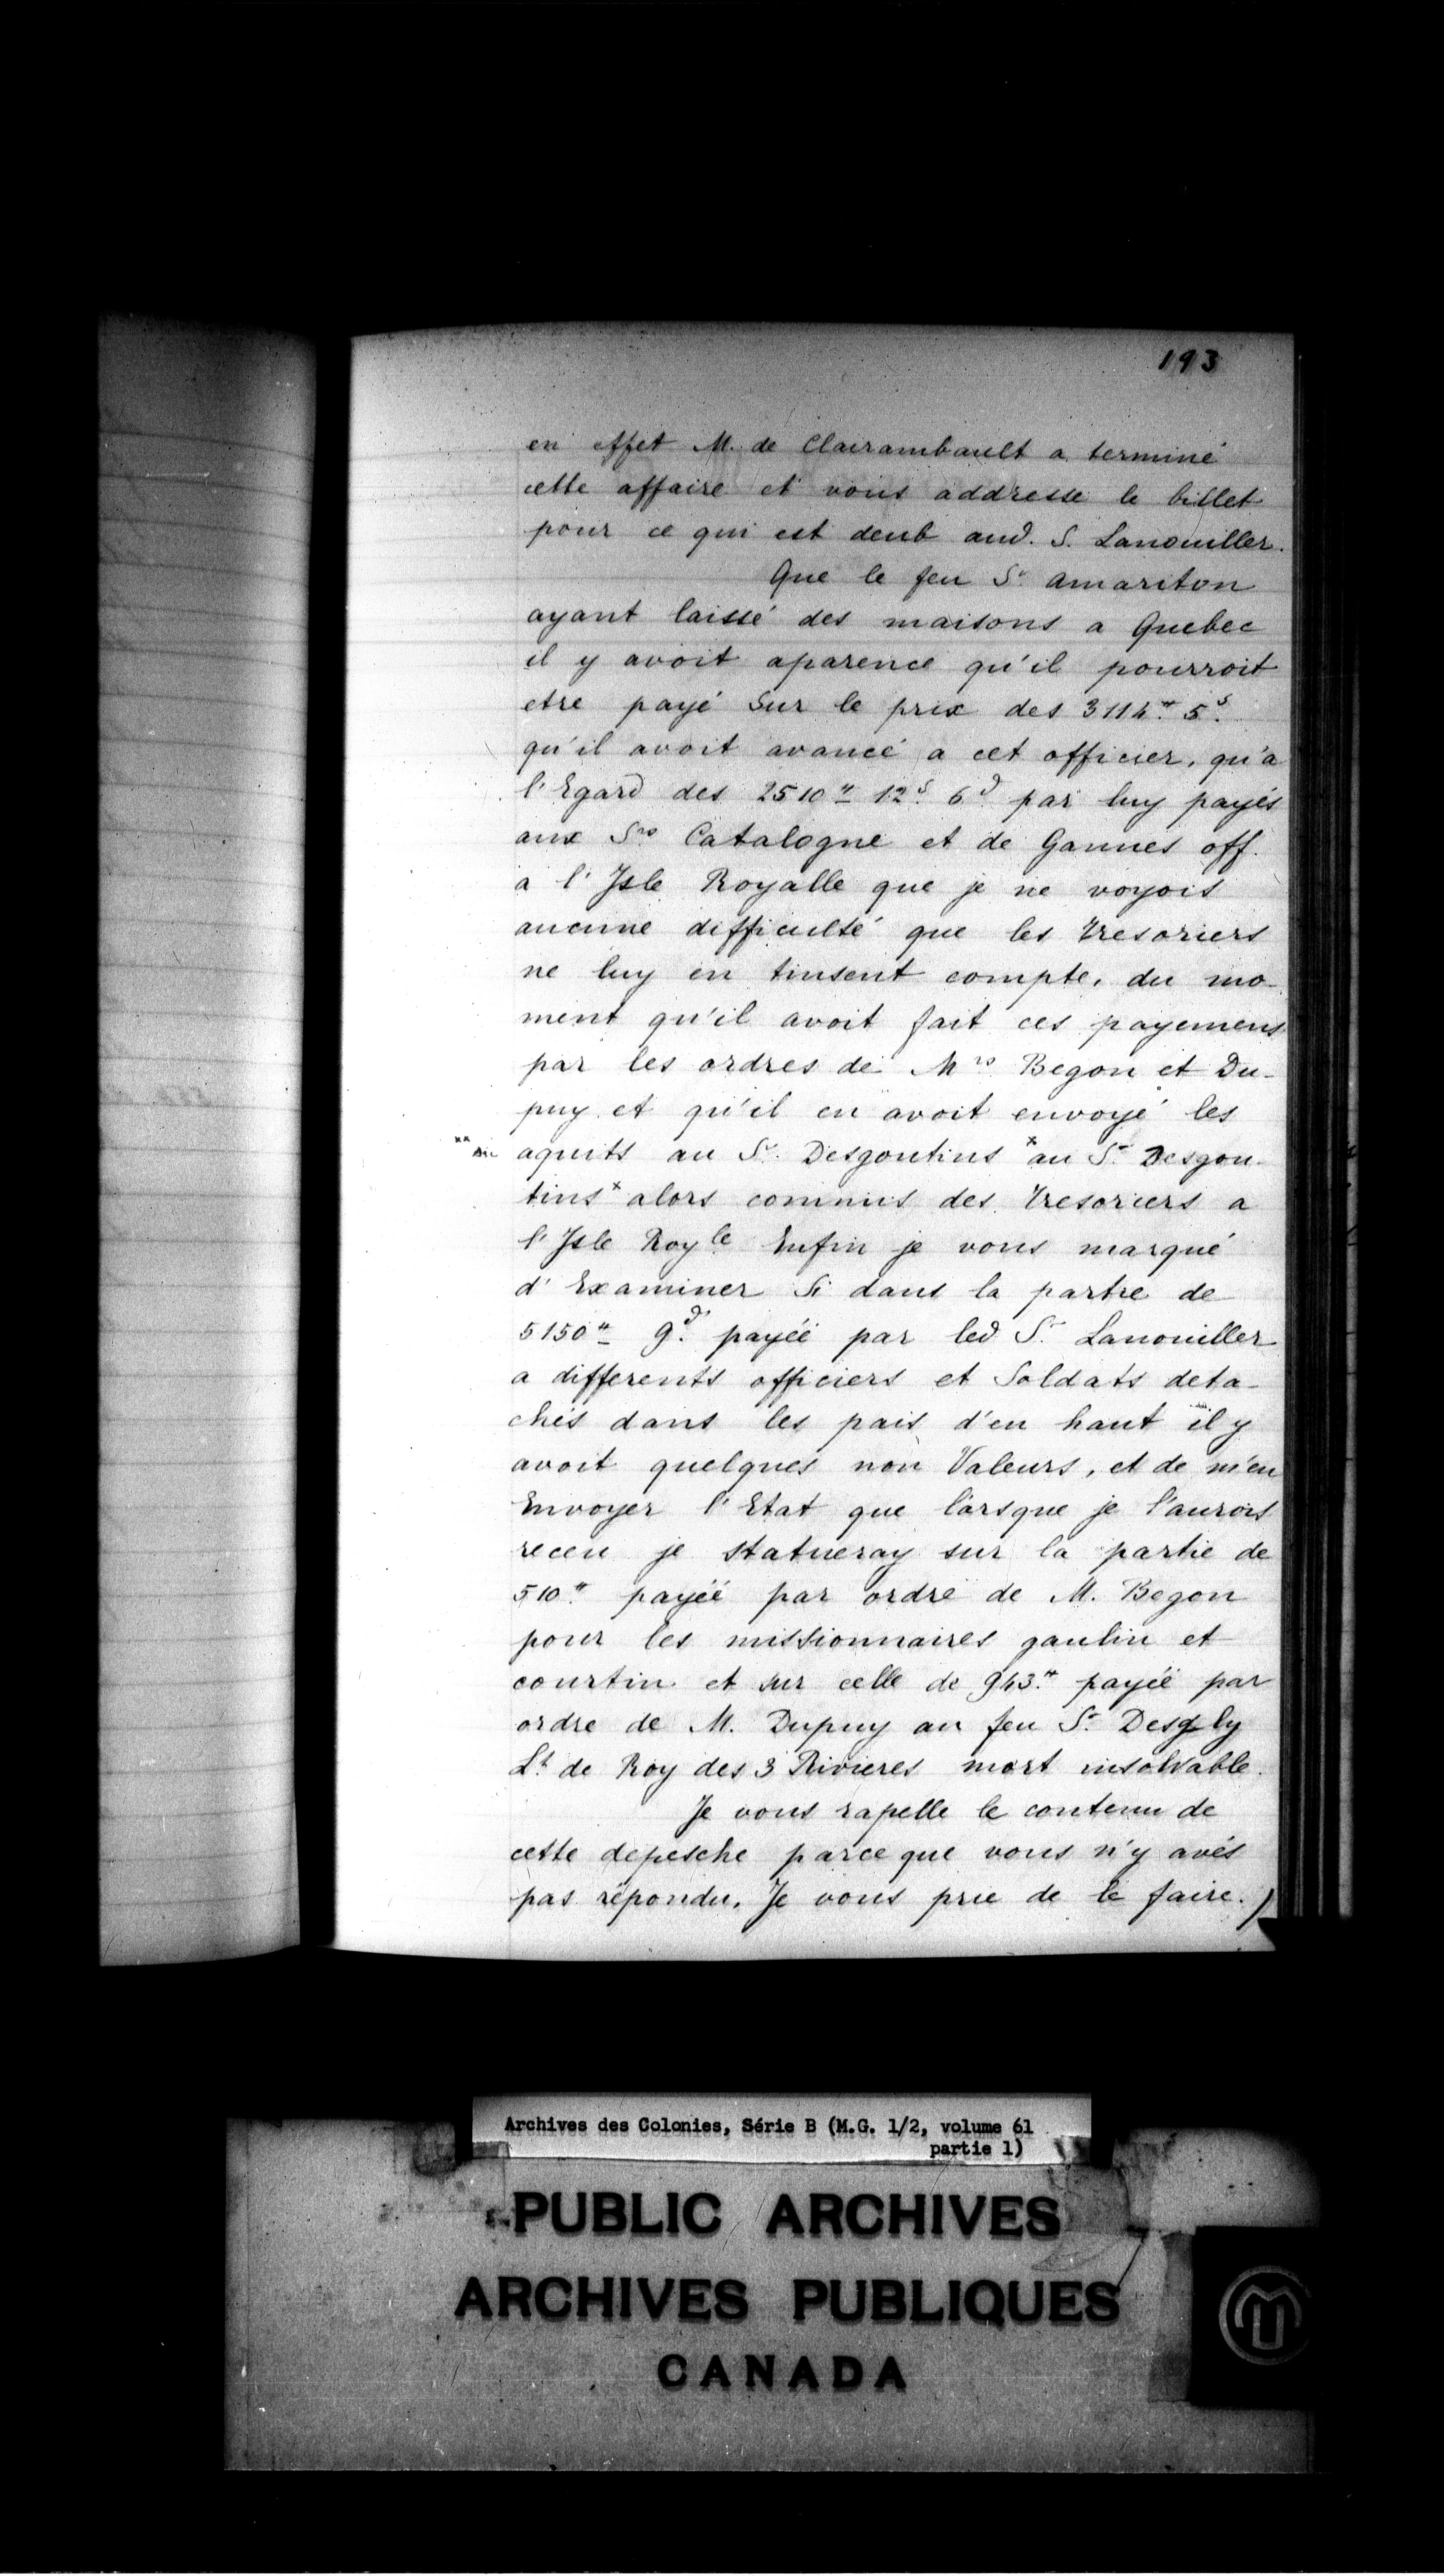 193
en effet M. de Clairambault a terminé
cette affaire et vous addresse le billet
pour ce qui est deub aud. S. Lanouiller.
Que le feu Sr. Amariton
ayant laissé des maisons a Quebec
il y avoit aparence qu'il pourroit
etre payé sur le prix des 3114 ₶ 5s.
qu'il avoit avancé a cet officier, qu'a
l'Egard des 2510 ₶ 12s. 6d par luy payés
aux Srs Catalogne et de Gannes off.
a l'Isle Royalle que je ne voyois
aucune difficulté que les tresoriers
ne luy en tinsent compte, du mo-
ment qu'il avoit fait ces payemens
par les ordres de Mrs Begon et Du-
puy et qu'il en avoit envoyé les
xx sic aquits au Sr. Desgoutins x au Sr. Desgou-
tins x alors commis des tresoriers a
l'Isle Royle Enfin je vous marqué
d'Examiner Si dans la partie de
5150 ₶ 9d. payéé par led Sr. Lanouiller
a differents officiers et Soldats deta-
chés dans les pais d'en haut il y
avoit quelques non Valeurs, et de m'en
Envoyer l'Etat que lorsque je l'aurois
receu je statueray sur la partie de
510 ₶ payéé par ordre de M. Begon
pour les missionnaires gaulin et
courtin et sur celle de 943 ₶ payéé par
ordre de M. Dupuy au feu Sr. Desgly
Lt. de Roy des 3 Rivieres mort insolvable.
Je vous rapelle le contenu de
cette depesche parce que vous n'y avés
pas répondu. Je vous prie de le faire.)
Archives des Colonies, Série B (M.G. 1/2, volume 61
partie 1)
PUBLIC ARCHIVES
ARCHIVES PUBLIQUES
CANADA